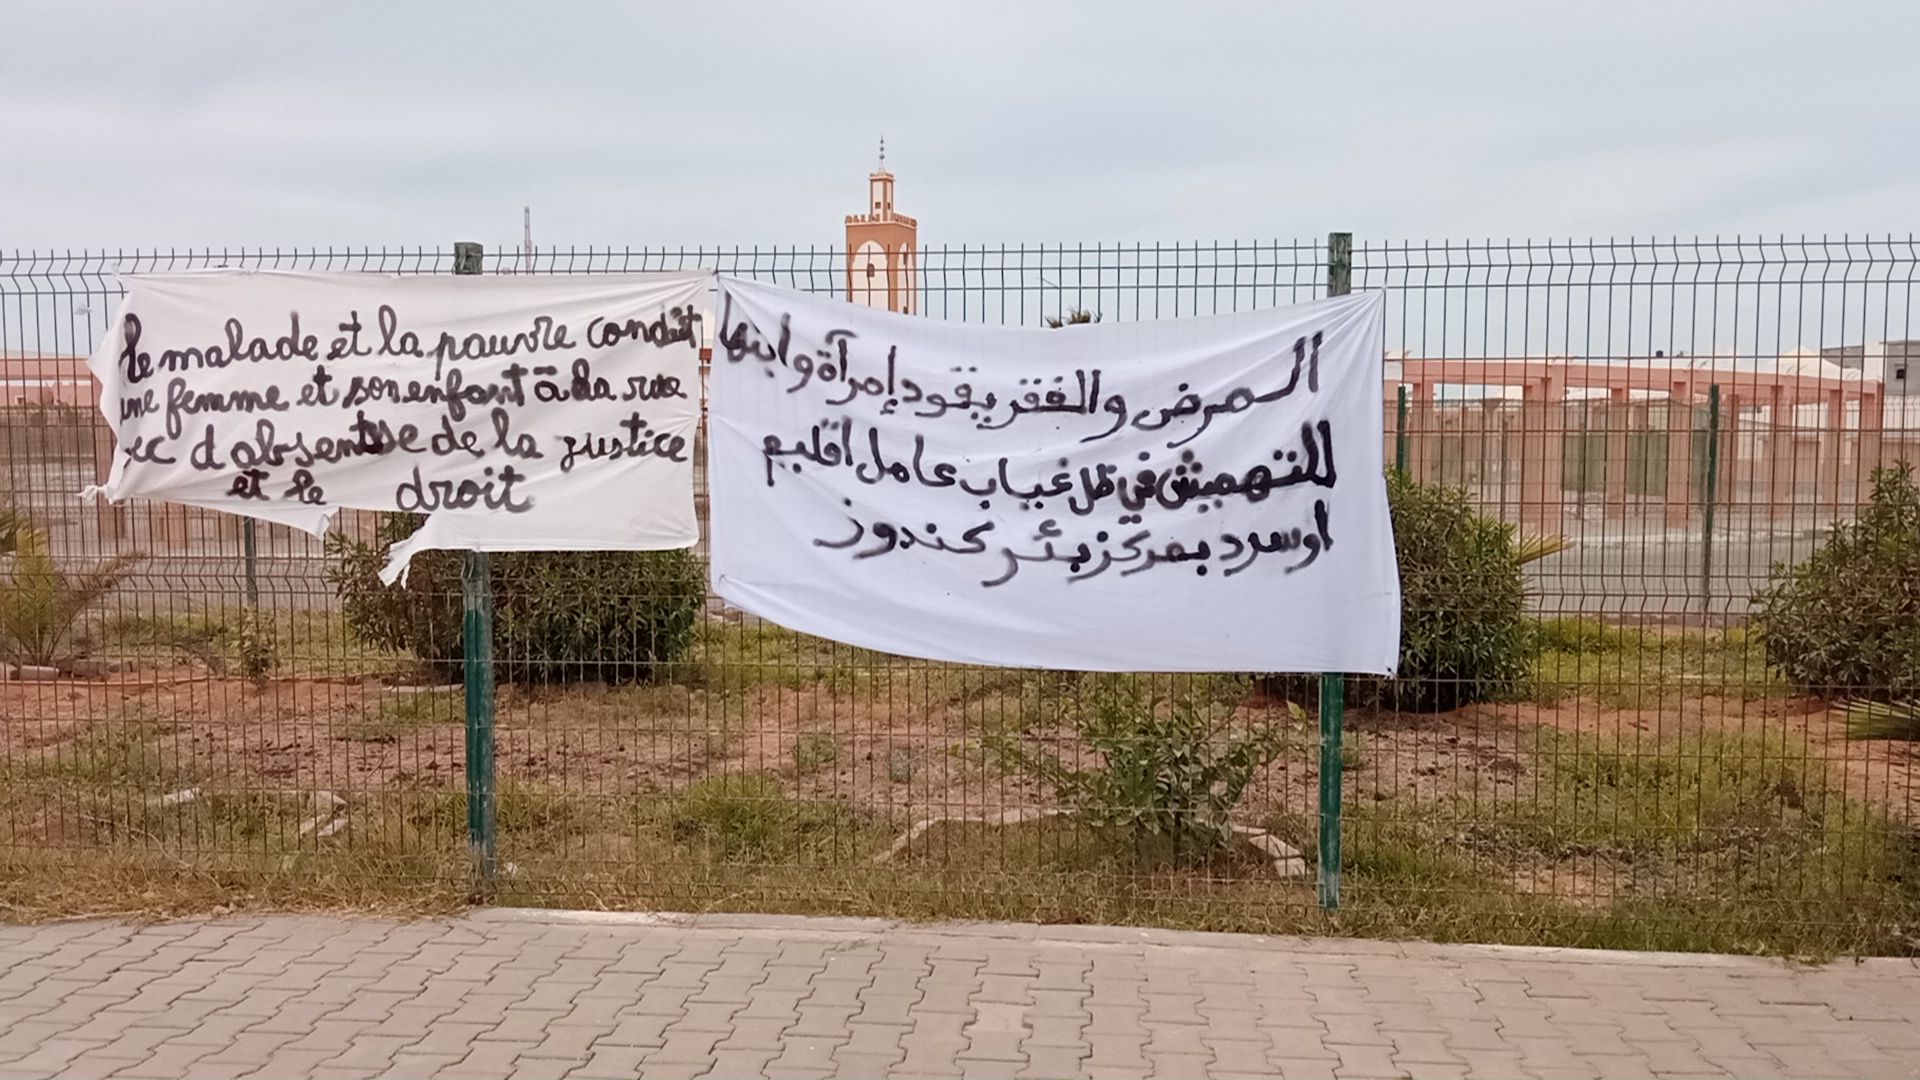 le malade et la pauvre conduit
une femme et son enfant à la rue
ec d'absentse de la justice
et le droit
المرض والفقر يقود إمرآة وابنها
للتهميش في ظل غياب عامل اقليم
اوسرد بمركز بئر كندوز